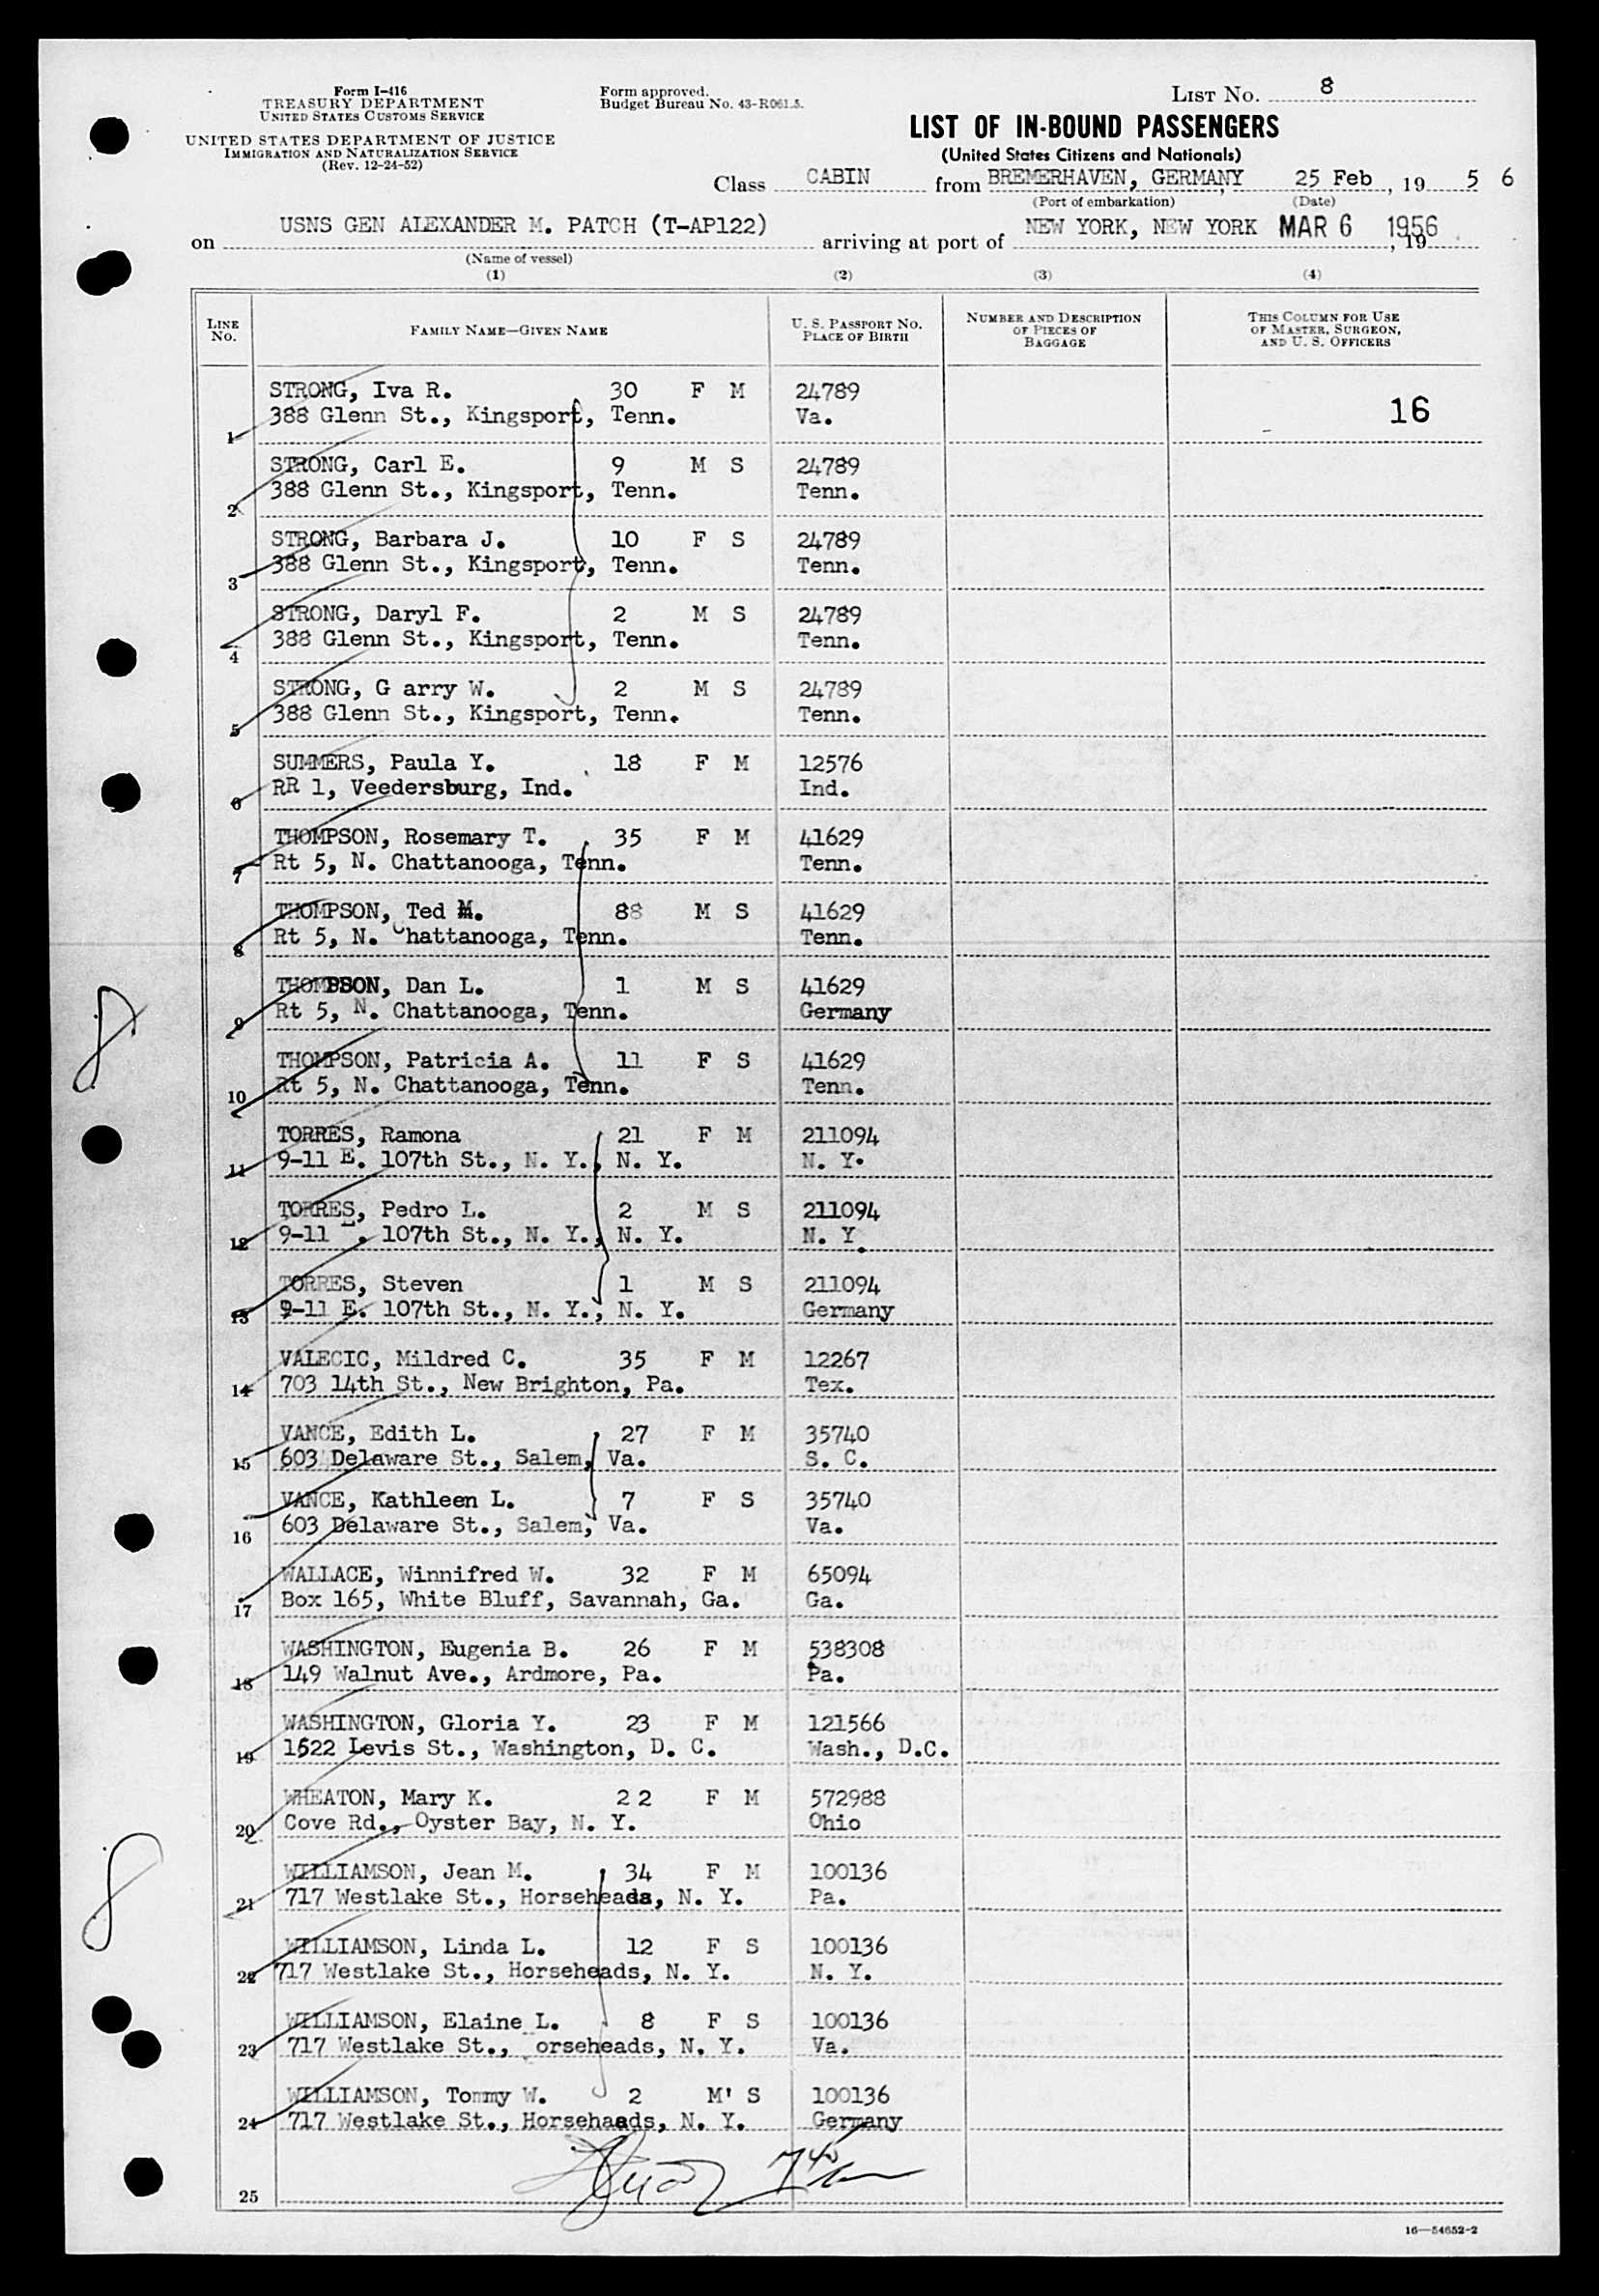 Form I-416
TREASURY DEPARTMENT
UNITED STATES CUSTOMS SERVICE
UNITED STATES DEPARTMENT OF JUSTICE
IMMIGRATION AND NATURALIZATION SERVICE
(Rev. 12-24-52)
Form approved.
Budget Bureau No. 43-R061.5.
LIST NO. 8
LIST OF IN-BOUND PASSENGERS
(United States Citizens and Nationals)
Class CABIN from BREMERHAVEN, GERMANY, 25 Feb, 19 5 6
(Port of embarkation) (Date)
on USNS GEN ALEXANDER M. PATCH (T-AP122) arriving at port of NEW YORK, NEW YORK MAR 6 1956, 19
(Name of vessel)
(1) (2) (3) (4)
LINE NO. FAMILY NAME—GIVEN NAME U. S. PASSPORT NO. PLACE OF BIRTH NUMBER AND DESCRIPTION OF PIECES OF BAGGAGE THIS COLUMN FOR USE OF MASTER, SURGEON, AND U. S. OFFICERS
STRONG, Iva R. 30 F M 24789
1 388 Glenn St., Kingsport, Tenn. Va. 16
STRONG, Carl E. 9 M S 24789
2 388 Glenn St., Kingsport, Tenn. Tenn.
STRONG, Barbara J. 10 F S 24789
3 388 Glenn St., Kingsport, Tenn. Tenn.
STRONG, Daryl F. 2 M S 24789
4 388 Glenn St., Kingsport, Tenn. Tenn.
STRONG, G arry W. 2 M S 24789
5 388 Glenn St., Kingsport, Tenn. Tenn.
SUMMERS, Paula Y. 18 F M 12576
6 RR 1, Veedersburg, Ind. Ind.
THOMPSON, Rosemary T. 35 F M 41629
7 Rt 5, N. Chattanooga, Tenn. Tenn.
THOMPSON, Ted M. 88 M S 41629
8 Rt 5, N. Chattanooga, Tenn. Tenn.
THOMPSON, Dan L. 1 M S 41629
9 Rt 5, N. Chattanooga, Tenn. Germany
THOMPSON, Patricia A. 11 F S 41629
10 Rt 5, N. Chattanooga, Tenn. Tenn.
TORRES, Ramona 21 F M 211094
11 9-11 E. 107th St., N. Y., N. Y. N. Y.
TORRES, Pedro L. 2 M S 211094
12 9-11 E. 107th St., N. Y., N. Y. N. Y.
TORRES, Steven 1 M S 211094
13 9-11 E. 107th St., N. Y., N. Y. Germany
VALECIC, Mildred C. 35 F M 12267
14 703 14th St., New Brighton, Pa. Tex.
VANCE, Edith L. 27 F M 35740
15 603 Delaware St., Salem, Va. S. C.
VANCE, Kathleen L. 7 F S 35740
16 603 Delaware St., Salem, Va. Va.
WALLACE, Winnifred W. 32 F M 65094
17 Box 165, White Bluff, Savannah, Ga. Ga.
WASHINGTON, Eugenia B. 26 F M 538308
18 149 Walnut Ave., Ardmore, Pa. Pa.
WASHINGTON, Gloria Y. 23 F M 121566
19 1622 Levis St., Washington, D. C. Wash., D.C.
WHEATON, Mary K. 2 2 F M 572988
20 Cove Rd., Oyster Bay, N. Y. Ohio
WILLIAMSON, Jean M. 34 F M 100136
21 717 Westlake St., Horseheads, N. Y. Pa.
WILLIAMSON, Linda L. 12 F S 100136
22 717 Westlake St., Horseheads, N. Y. N. Y.
WILLIAMSON, Elaine L. 8 F S 100136
23 717 Westlake St., orseheads, N. Y. Va.
WILLIAMSON, Tommy W. 2 M' S 100136
24 717 Westlake St., Horsehaeds, N. Y. Germany
25
8
8
16—54652-2